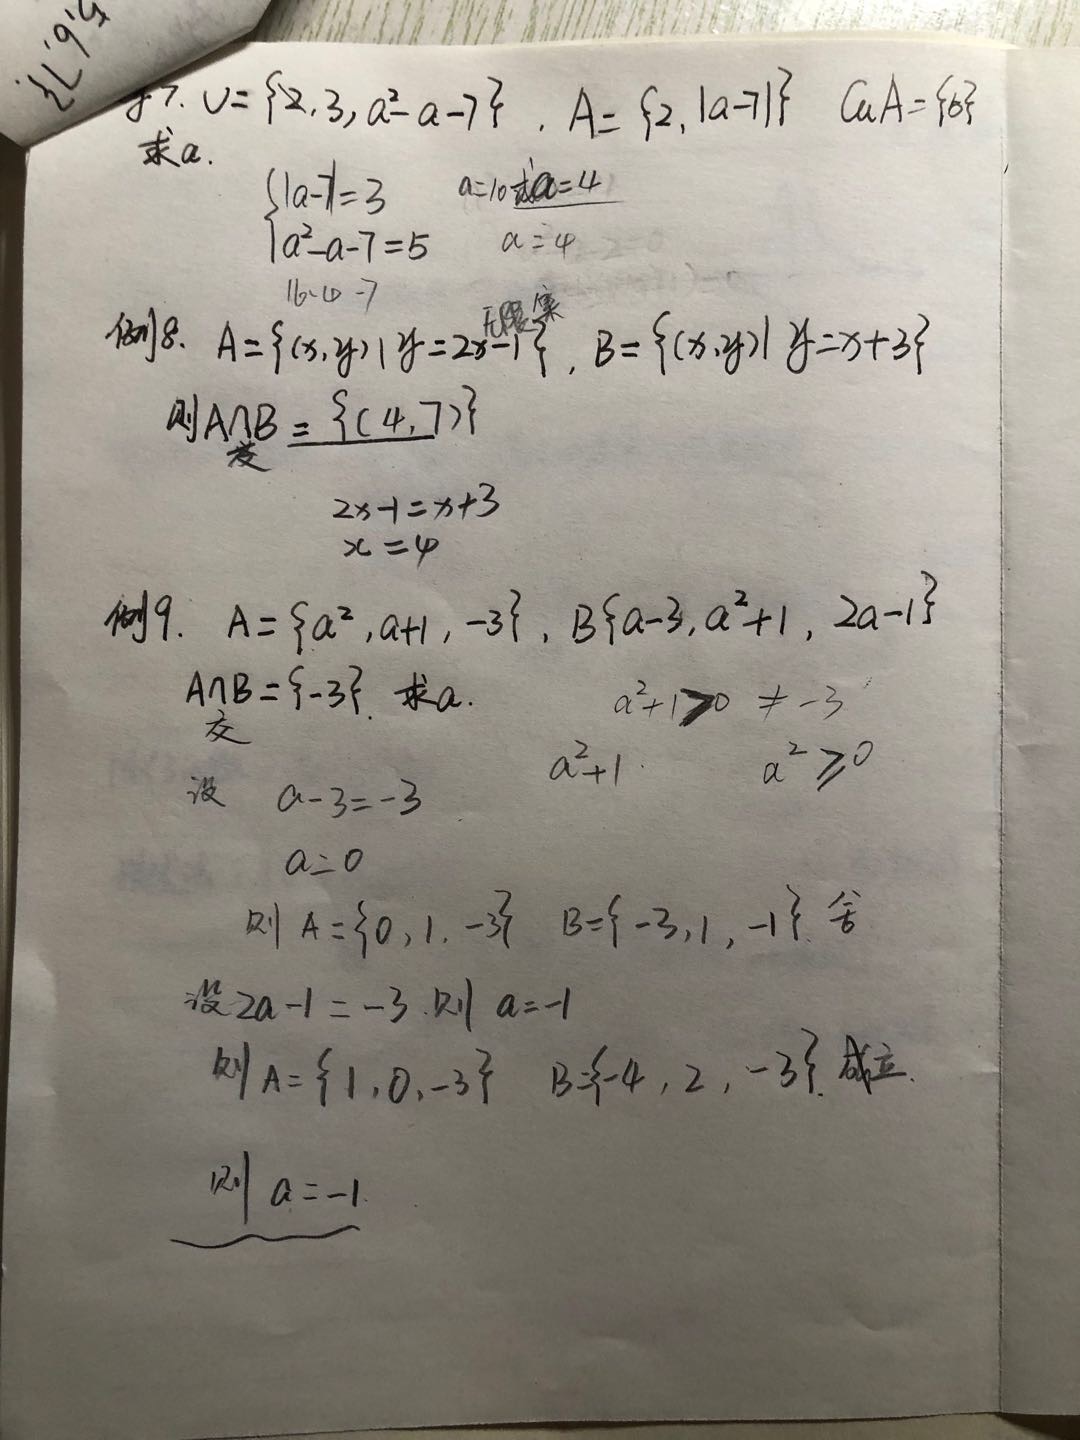 5,6,7}.
例7. U={2,3,a²-a-7}, A={2,|a-7|} CuA={5}
求a.
{|a-7|=3 a=10或a=4
a²-a-7=5 a=4
16-4-7
无限集
例8. A={(x,y)|y=2x-1}, B={(x,y)|y=x+3}
则A∩B={(4,7)}
交
2x-1=x+3
x=4
例9. A={a²,a+1,-3}, B{a-3,a²+1,2a-1}
A∩B={-3}. 求a. a²+1>0 ≠-3
交
a²+1. a²≥0
设 a-3=-3
a=0
则A={0,1,-3} B={-3,1,-1}. 舍
设2a-1=-3.则 a=-1
则A={1,0,-3} B={-4,2,-3}. 成立.
则 a=-1.